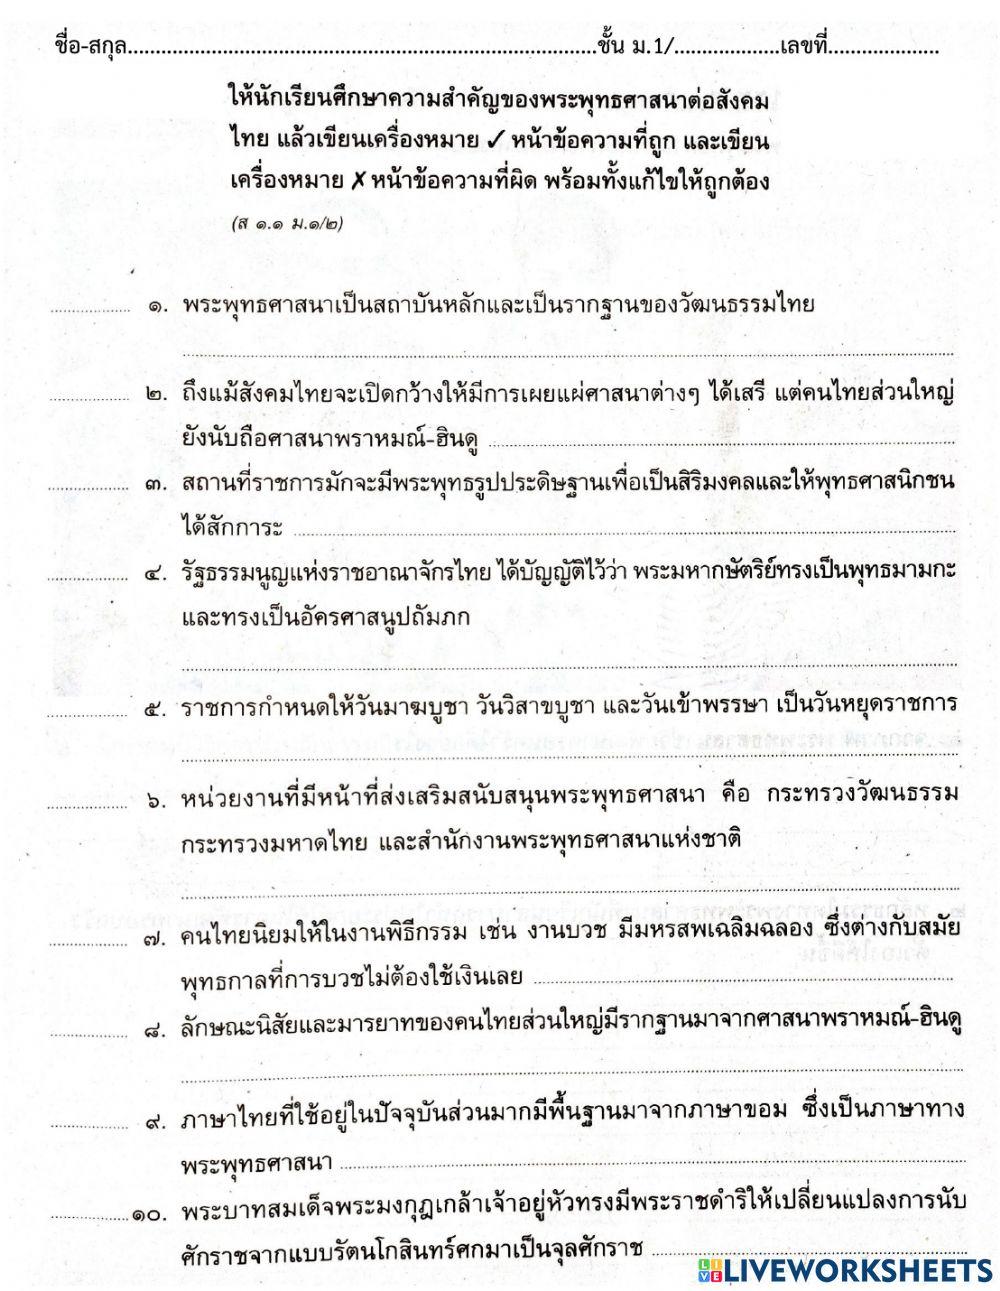 ชื่อ-สกุล....................................................................................ชั้น ม.1/...................เลขที่....................
ให้นักเรียนศึกษาความสำคัญของพระพุทธศาสนาต่อสังคม
ไทย แล้วเขียนเครื่องหมาย ✓ หน้าข้อความที่ถูก และเขียน
เครื่องหมาย ✗ หน้าข้อความที่ผิด พร้อมทั้งแก้ไขให้ถูกต้อง
(ส ๑.๑ ม.๑/๒)
๑. พระพุทธศาสนาเป็นสถาบันหลักและเป็นรากฐานของวัฒนธรรมไทย
๒. ถึงแม้สังคมไทยจะเปิดกว้างให้มีการเผยแผ่ศาสนาต่างๆ ได้เสรี แต่คนไทยส่วนใหญ่
ยังนับถือศาสนาพราหมณ์-ฮินดู
๓. สถานที่ราชการมักจะมีพระพุทธรูปประดิษฐานเพื่อเป็นสิริมงคลและให้พุทธศาสนิกชน
ได้สักการะ
๔. รัฐธรรมนูญแห่งราชอาณาจักรไทย ได้บัญญัติไว้ว่า พระมหากษัตริย์ทรงเป็นพุทธมามกะ
และทรงเป็นอัครศาสนูปถัมภก
๕. ราชการกำหนดให้วันมาฆบูชา วันวิสาขบูชา และวันเข้าพรรษา เป็นวันหยุดราชการ
๖. หน่วยงานที่มีหน้าที่ส่งเสริมสนับสนุนพระพุทธศาสนา คือ กระทรวงวัฒนธรรม
กระทรวงมหาดไทย และสำนักงานพระพุทธศาสนาแห่งชาติ
๗. คนไทยนิยมให้ในงานพิธีกรรม เช่น งานบวช มีมหรสพเฉลิมฉลอง ซึ่งต่างกับสมัย
พุทธกาลที่การบวชไม่ต้องใช้เงินเลย
๘. ลักษณะนิสัยและมารยาทของคนไทยส่วนใหญ่มีรากฐานมาจากศาสนาพราหมณ์-ฮินดู
๙. ภาษาไทยที่ใช้อยู่ในปัจจุบันส่วนมากมีพื้นฐานมาจากภาษาขอม ซึ่งเป็นภาษาทาง
พระพุทธศาสนา
๑๐. พระบาทสมเด็จพระมงกุฎเกล้าเจ้าอยู่หัวทรงมีพระราชดำริให้เปลี่ยนแปลงการนับ
ศักราชจากแบบรัตนโกสินทร์ศกมาเป็นจุลศักราช
LIVE LIVEWORKSHEETS